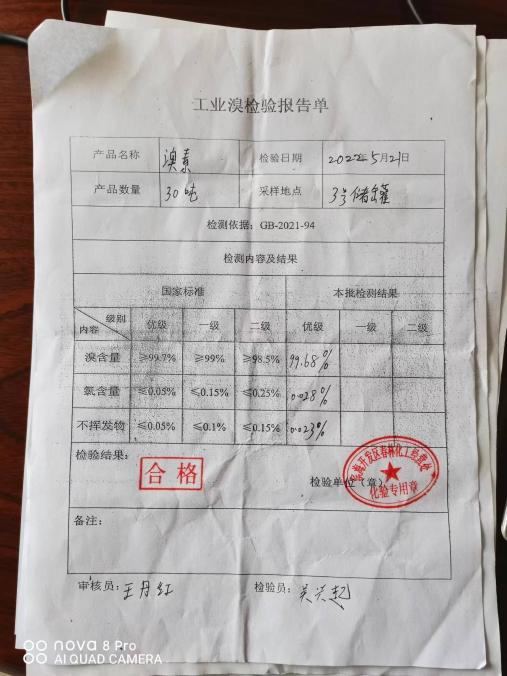 工业溴检验报告单
产品名称 溴素 检验日期 2022年5月21日
产品数量 30吨 采样地点 3号储罐
检测依据: GB-2021-94
检测内容及结果
国家标准 本批检测结果
级别 内容 优级 一级 二级 优级 一级 二级
溴含量 ≥99.7% ≥99% ≥98.5% 99.68%
氯含量 ≤0.05% ≤0.15% ≤0.25% 0.028%
不挥发物 ≤0.05% ≤0.1% ≤0.15% 0.023%
检验结果:
合格
检验单位(章)
开发区春林化工经营处
化验专用章
备注:
审核员: 王丹红 检验员: 吴兴起
nova 8 Pro
AI QUAD CAMERA